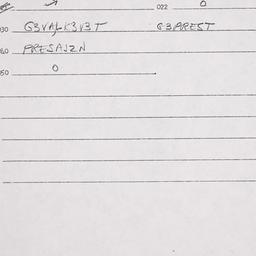 022 0
030 G3VALK3V3T G3PREST
PRESAJZN
050 0